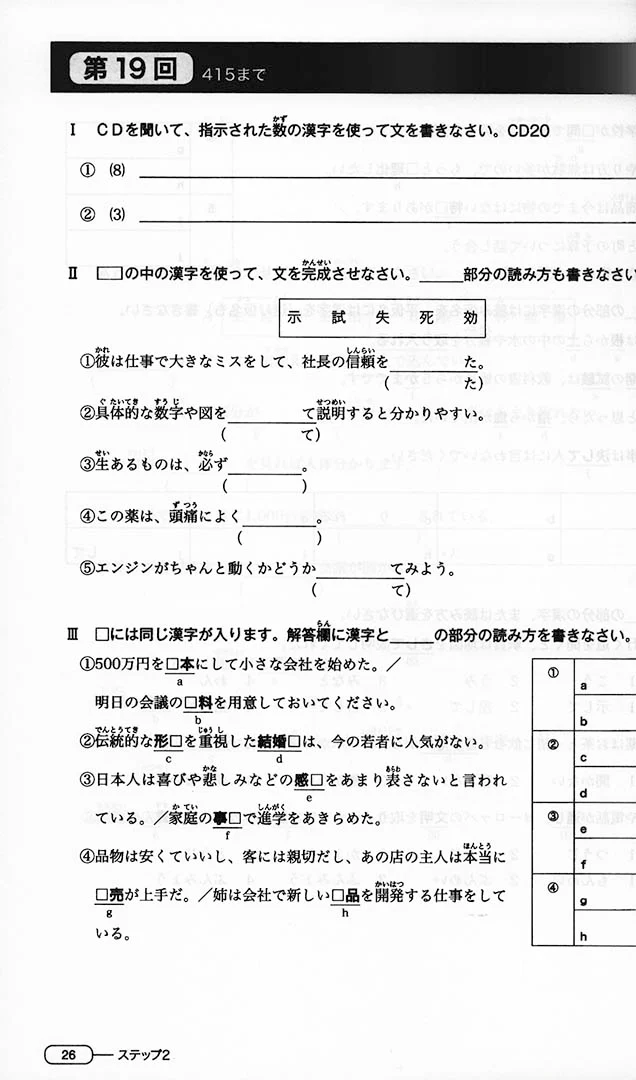 第19回 415まで
Ⅰ CDを聞いて、指示された数の漢字を使って文を書きなさい。CD20
かず
① (8)
② (3)
Ⅱ □の中の漢字を使って、文を完成させなさい。_____部分の読み方も書きなさい
かんせい
示 試 失 死 効
かれ しんらい
①彼は仕事で大きなミスをして、社長の信頼を________た。
( た)
ぐたいてき すうじ せつめい
②具体的な数字や図を________て説明すると分かりやすい。
( て)
せい かなら
③生あるものは、必ず________。
( )
ずつう
④この薬は、頭痛によく________。
( )
⑤エンジンがちゃんと動くかどうか________てみよう。
( て)
らん
Ⅲ □には同じ漢字が入ります。解答欄に漢字と_____の部分の読み方を書きなさい。
①500万円を□本にして小さな会社を始めた。/
a
明日の会議の□料を用意しておいてください。
b
でんとうてき じゅうし
②伝統的な形□を重視した結婚□は、今の若者に人気がない。
c d
かな あらわ
③日本人は喜びや悲しみなどの感□をあまり表さないと言われ
e
かてい しんがく
ている。/家庭の事□で進学をあきらめた。
f
ほんとう
④品物は安くていいし、客には親切だし、あの店の主人は本当に
かいはつ
□売が上手だ。/姉は会社で新しい□品を開発する仕事をして
g h
いる。
① a
b
② c
d
③ e
f
④ g
h
26 ステップ2